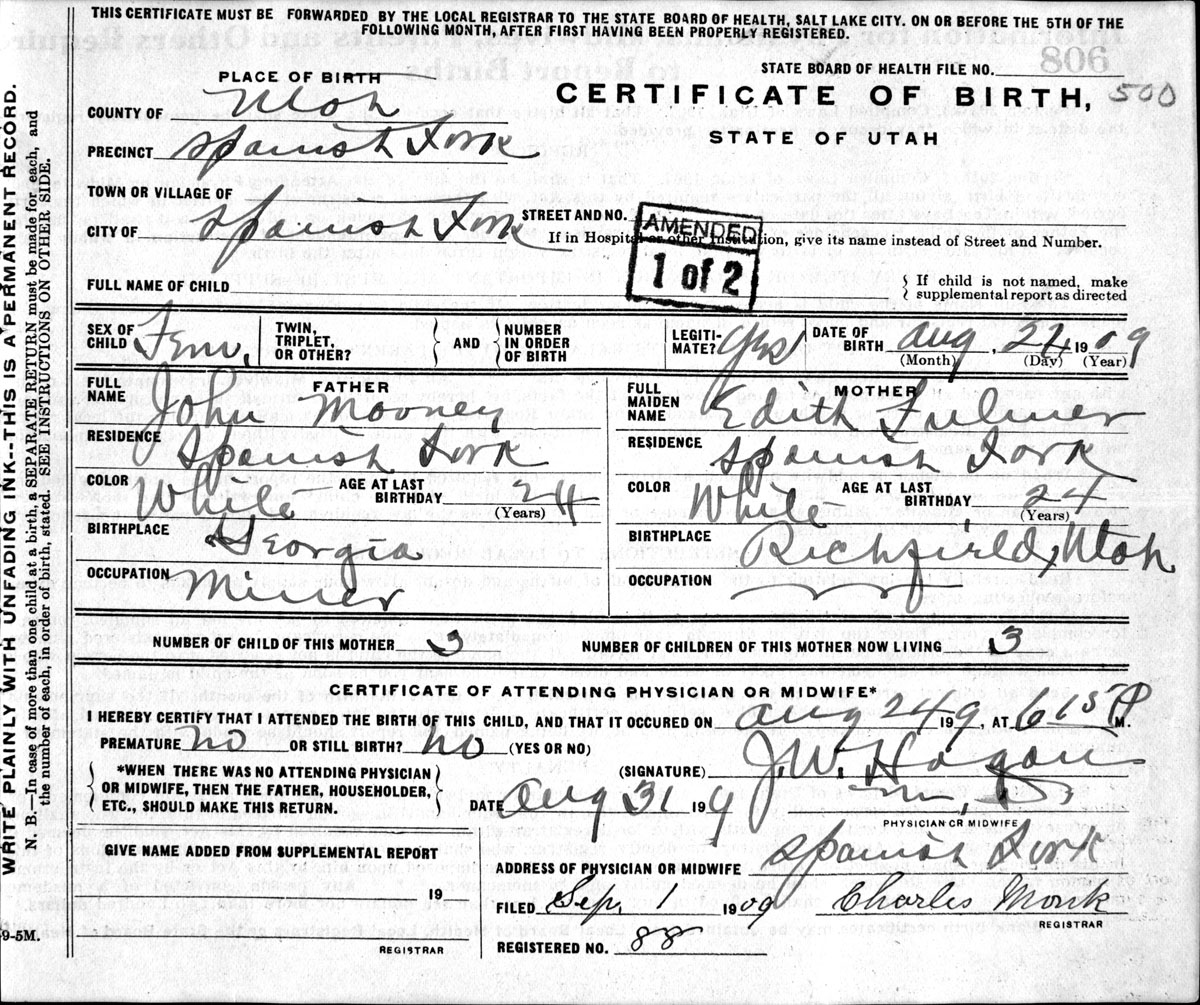 THIS CERTIFICATE MUST BE FORWARDED BY THE LOCAL REGISTRAR TO THE STATE BOARD OF HEALTH, SALT LAKE CITY. ON OR BEFORE THE 5TH OF THE
FOLLOWING MONTH, AFTER FIRST HAVING BEEN PROPERLY REGISTERED.
WRITE PLAINLY WITH UNFADING INK--THIS IS A PERMANENT RECORD.
N. B.—In case of more than one child at a birth, a SEPARATE RETURN must be made for each, and
the number of each, in order of birth, stated. SEE INSTRUCTIONS ON OTHER SIDE.
STATE BOARD OF HEALTH FILE NO.
PLACE OF BIRTH
CERTIFICATE OF BIRTH, 500
STATE OF UTAH
COUNTY OF Utah
PRECINCT Spanish Fork
TOWN OR VILLAGE OF
CITY OF Spanish Fork STREET AND NO.
If in Hospital or other Institution, give its name instead of Street and Number.
AMENDED
1 of 2
FULL NAME OF CHILD
If child is not named, make
supplemental report as directed
SEX OF CHILD Fem. TWIN, TRIPLET, OR OTHER? AND NUMBER IN ORDER OF BIRTH LEGITI-MATE? Yes DATE OF BIRTH Aug. 24 1909
(Month) (Day) (Year)
FATHER
FULL NAME John Mooney
RESIDENCE Spanish Fork
COLOR White AGE AT LAST BIRTHDAY 24
(Years)
BIRTHPLACE Georgia
OCCUPATION Miner
MOTHER
FULL MAIDEN NAME Edith Fulmer
RESIDENCE Spanish Fork
COLOR White AGE AT LAST BIRTHDAY 24
(Years)
BIRTHPLACE Richfield, Utah
OCCUPATION
NUMBER OF CHILD OF THIS MOTHER 3 NUMBER OF CHILDREN OF THIS MOTHER NOW LIVING 3
CERTIFICATE OF ATTENDING PHYSICIAN OR MIDWIFE*
I HEREBY CERTIFY THAT I ATTENDED THE BIRTH OF THIS CHILD, AND THAT IT OCCURED ON Aug 24 199, AT 615 P M.
PREMATURE no OR STILL BIRTH? no (YES OR NO)
*WHEN THERE WAS NO ATTENDING PHYSICIAN
OR MIDWIFE, THEN THE FATHER, HOUSEHOLDER,
ETC., SHOULD MAKE THIS RETURN.
(SIGNATURE) J. W. Hagan
DATE Aug 31 199
PHYSICIAN OR MIDWIFE
GIVE NAME ADDED FROM SUPPLEMENTAL REPORT
19
REGISTRAR
9-5M.
ADDRESS OF PHYSICIAN OR MIDWIFE Spanish Fork
FILED Sep. 1909 Charles Monk
REGISTRAR
REGISTERED NO. 88